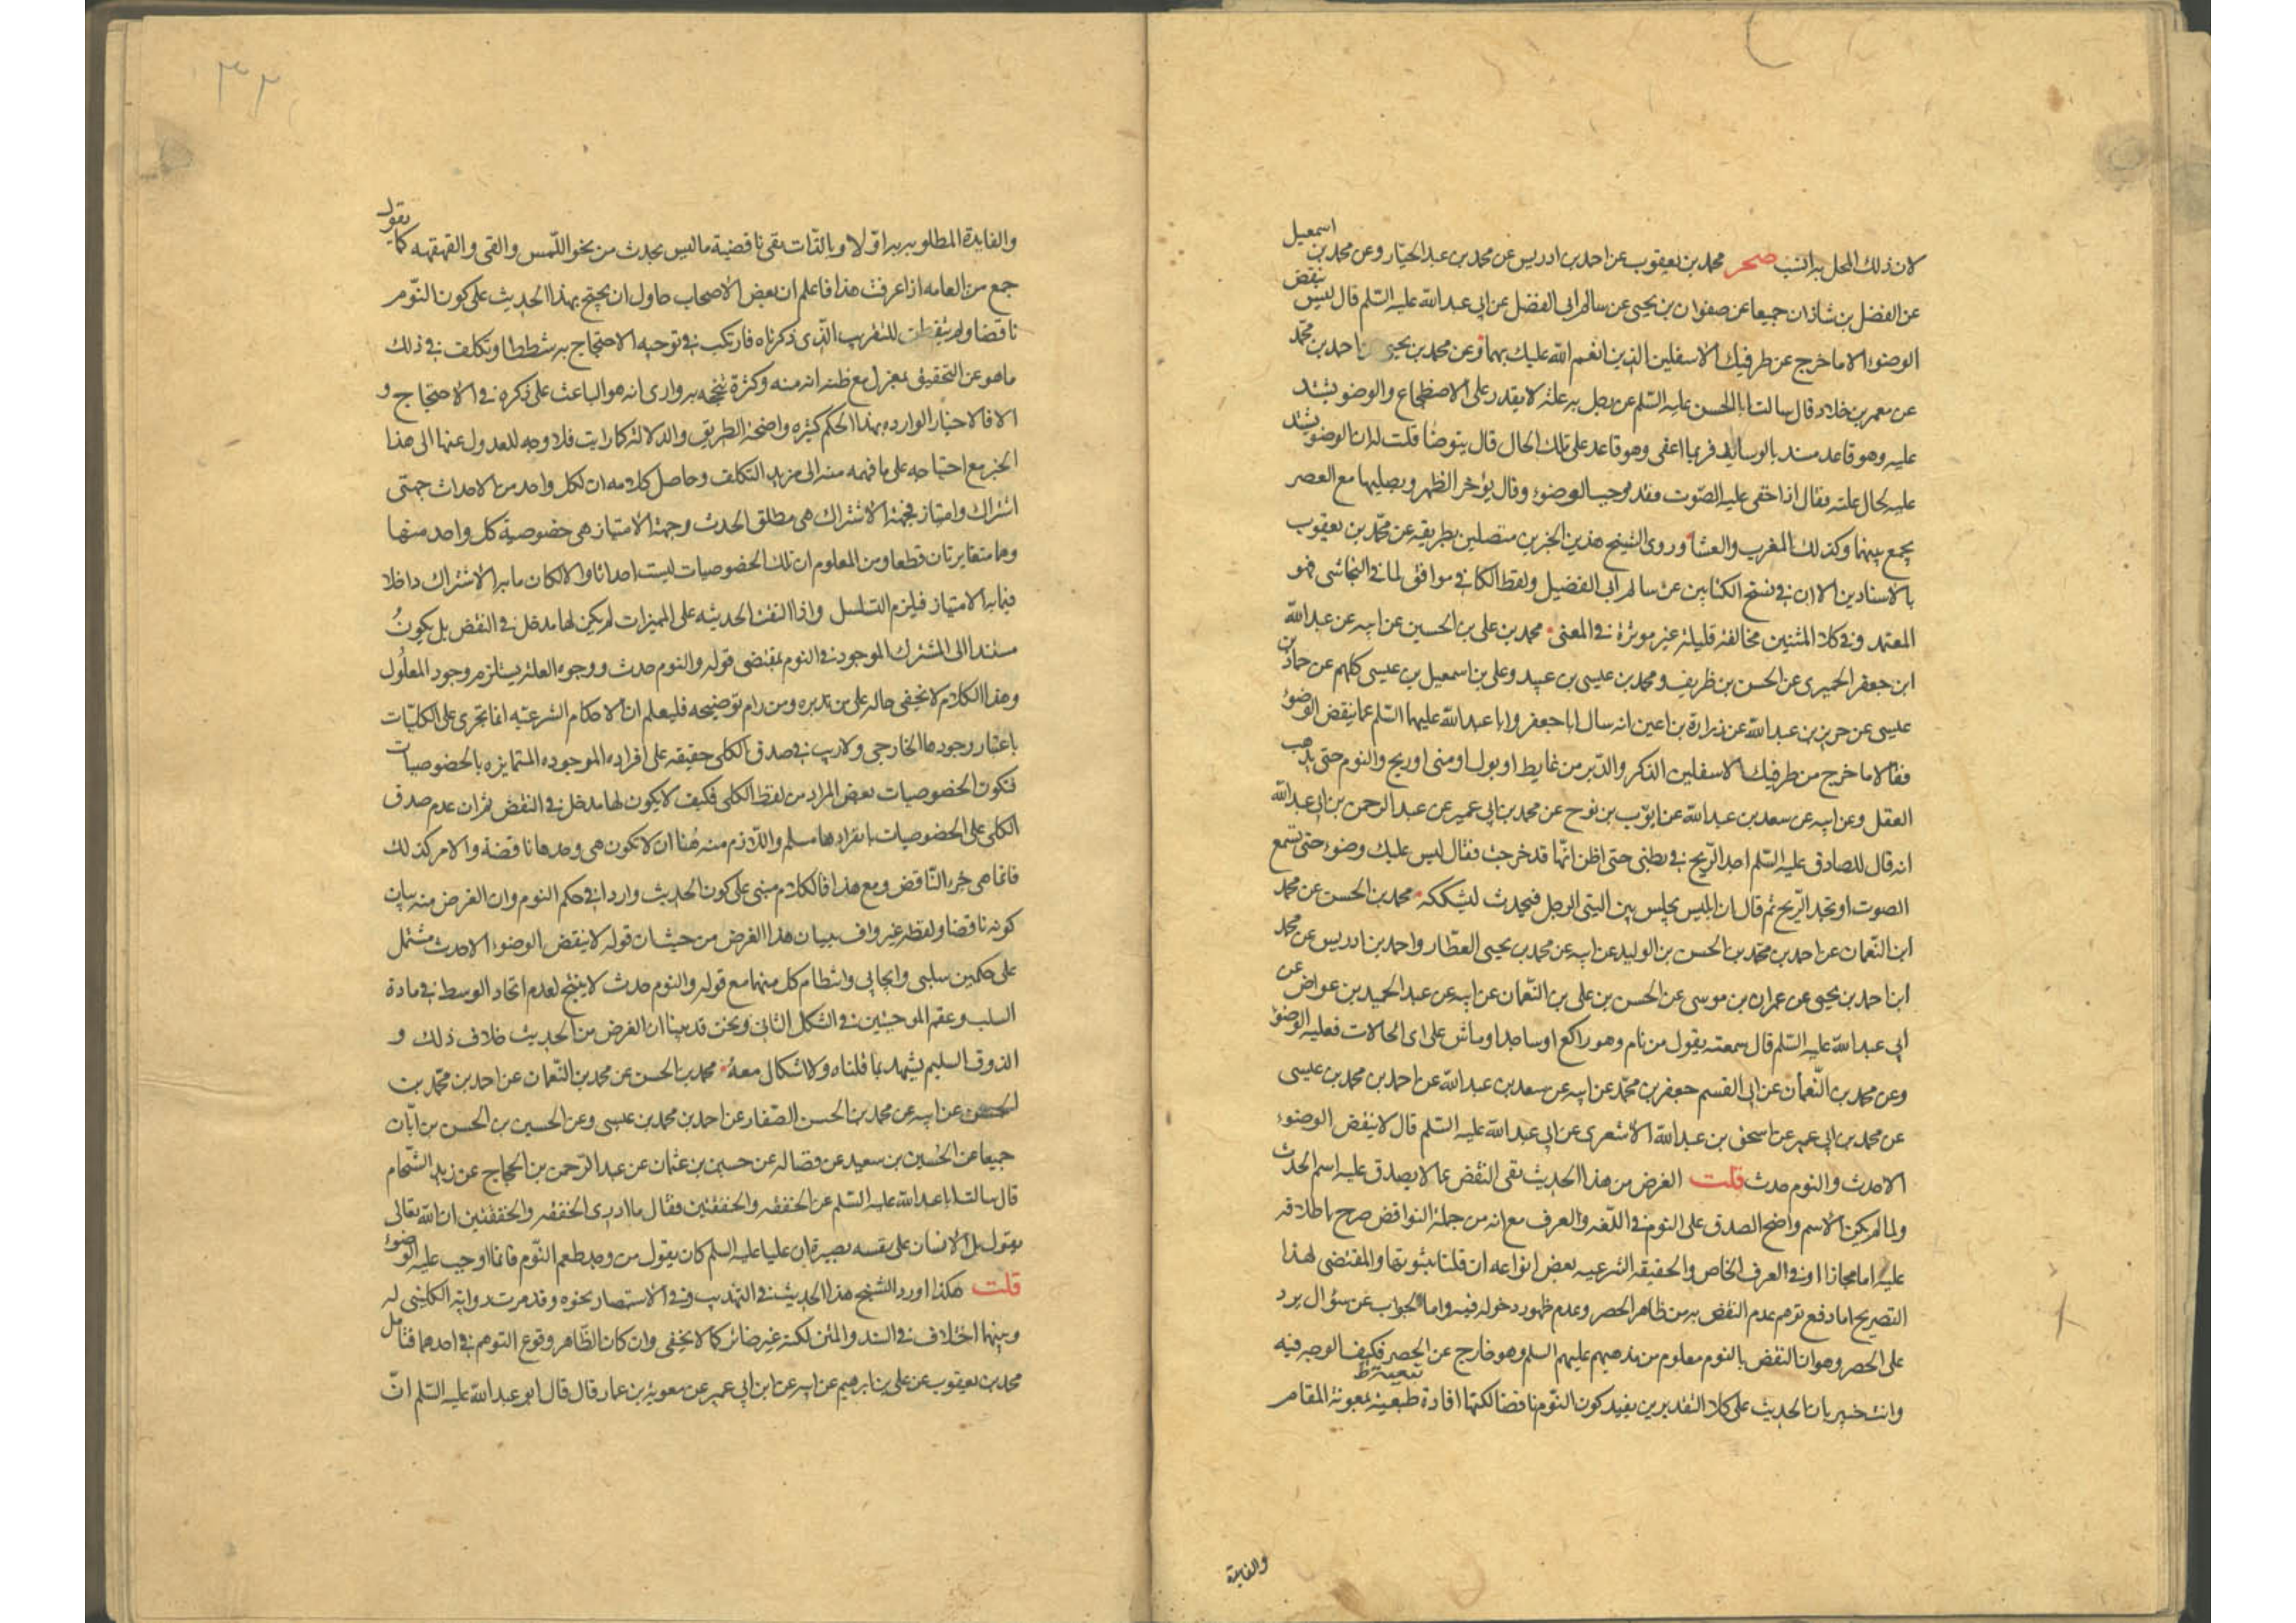 لان ذلك المحل به انسب صحر محمد بن يعقوب عن احمد بن ادريس عن محمد بن عبد الجبار وعن محمد بن اسمعيل
عن الفضل بن شاذان جميعا عن صفوان بن يحيى عن سالم ابى الفضل عن ابى عبد الله عليه السّلم قال ليس ينقض
الوضوء الا ما خرج عن طرفيك الاسفلين الذين انعم الله عليك بهما وعن محمد بن يحيى احمد بن محمّد
عن معمر بن خلاد قال سالت ابا الحسن عليه السّلم عن رجل به علّة لا يقدر على الاضطجاع والوضو يشتد
عليه وهو قاعد مسند بالوسايد فربما اغفى وهو قاعد على تلك الحال قال يتوضا قلت له ان الوضو يشتد
عليه لحال علته فقال اذا خفى عليه الصّوت فقد وجب الوضوء وقال يؤخر الظهر ويصليها مع العصر
يجمع بينهما وكذلك المغرب والعشا وروى الشيخ هذين الخبرين متصلين بطريقه عن محمّد بن يعقوب
بالاسنادين الا ان فى نسخ الكتابين عن سالم ابى الفضيل ولفظ الكافى موافق لما فى النجاشى فهو
المعتمد وفى كلا المتنين مخالفة قليلة غير موثرة فى المعنى محمد بن على بن الحسين عن ابيه عن عبد الله
ابن جعفر الحميرى عن الحسن بن ظريف ومحمد بن عيسى بن عبيد وعلى بن اسمعيل بن عيسى كلهم عن حماد بن
عيسى عن حريز بن عبد الله عن زرارة بن اعين انه سال ابا جعفر وابا عبد الله عليهما السّلم عما ينقض الوضوء
فقالا ما خرج من طرفيك الاسفلين الذكر والدّبر من غايط او بول او منى او ريح والنوم حتى يذهب
العقل وعن ابيه عن سعد بن عبد الله عن ايّوب بن نوح عن محمد بن ابى عمير عن عبد الرحمن بن ابى عبد الله
انه قال للصادق عليه السّلم اجد الرّيح فى بطنى حتى اظن انّها قد خرجت فقال ليس عليك وضوء حتى تسمع
الصوت او تجد الرّيح ثم قال ان ابليس يجلس بين اليتى الرجل فيحدث ليشككه محمد بن الحسن عن محمد
ابن النّعمان عن احمد بن محمّد بن الحسن بن الوليد عن ابيه عن محمد بن يحيى العطّار واحمد بن ادريس عن محمد
ابن احمد بن يحيى عن عمران بن موسى عن الحسن بن على بن النّعمان عن ابيه عن عبد الحميد بن عواض عن
ابى عبد الله عليه السّلم قال سمعته يقول من نام وهو راكع او ساجد او ماش على اى الحالات فعليه الوضوء
وعن محمد بن النّعمان عن ابى القسم جعفر بن محمّد عن ابيه عن سعد بن عبد الله عن احمد بن محمد بن عيسى
عن محمد بن ابى عمير عن اسحق بن عبد الله الاشعرى عن ابى عبد الله عليه السّلم قال لا ينقض الوضوء
الا حدث والنوم حدث قلت الغرض من هذا الحديث نفى النقض عما لا يصدق عليه اسم الحدث
ولما لم يكن الاسم واضح الصدق على النوم فى اللّغه والعرف مع انه من جملة النواقض صرح باطلاقه
عليه اما مجازا او فى العرف الخاص والحقيقه الشرعيه بعض انواعه ان قلنا بثبوتها والمقتضى لهذا
التصريح اما دفع توهم عدم النقض به من ظاهر الحصر وعدم ظهور دخوله فيه واما الجواب عن سؤال يرد
على الحصر وهو ان النقض بالنوم معلوم من مذهبهم عليهم السلم وهو خارج عن الحصر فكيف الوجه فيه
وانت خبير بان الحديث على كلا التقديرين يفيد كون النّوم ناقضا لكنها افادة تبعية بمعونة المقام
والفايدة
والفايدة المطلوبه به اوّلا وبالذّات نفى ناقضية ما ليس بحدث من نحو اللّمس والقى والقهقهه كما يقول
جمع من العامه اذا عرفت هذا فاعلم ان بعض الاصحاب حاول ان يحتج بهذا الحديث على كون النّوم
ناقضا ولم يتفطن للتقريب الّذى ذكرناه فارتكب فى توجيه الاحتجاج به شططا وتكلف فى ذلك
ما هو عن التحقيق بمعزل مع ظنه انه منه وكثرة تبجحه به وارى انه هو الباعث على ذكره فى الاحتجاج و
الا فالاخبار الوارده بهذا الحكم كثيره واضحة الطريق والدلالة كما رايت فلا وجه للعدول عنها الى هذا
الخبر مع احتياجه على ما فهمه منه الى مزيد التكلف وحاصل كلامه ان لكل واحد من الاحداث جهتى
اشتراك وامتياز فجهة الاشتراك هى مطلق الحدث وجهة الامتياز هى خصوصية كل واحد منها
وهما متغايرتان قطعا ومن المعلوم ان تلك الخصوصيات ليست احداثا والا لكان ما به الاشتراك داخلا
فيما به الامتياز فيلزم التسلسل واذا انتفت الحدثيه على المميزات لم يكن لها مدخل فى النقض بل يكون
مستندا الى المشترك الموجود فى النوم بمقتضى قوله والنوم حدث ووجود العلة يستلزم وجود المعلول
وهذا الكلام لا يخفى حاله على من تدبره ومن رام توضيحه فليعلم ان الاحكام الشرعيه انما تجرى على الكليّات
باعتبار وجودها الخارجى ولا ريب فى صدق الكلى حقيقه على افراده الموجوده المتمايزه بالخصوصيات
فتكون الخصوصيات بعض المراد من لفظ الكلى فكيف لا يكون لها مدخل فى النقض ثم ان عدم صدق
الكلى على الخصوصيات بانفرادها مسلم واللّازم منه هنا ان لا تكون هى وحدها ناقضة والامر كذلك
فانما هى جزء النّاقض ومع هذا فالكلام مبنى على كون الحديث واردا فى حكم النوم وان الغرض منه بيان
كونه ناقضا ولفظه غير واف ببيان هذا الغرض من حيث ان قوله لا ينقض الوضوء الا حدث مشتمل
على حكمين سلبى وايجابى وانتظام كل منهما مع قوله والنوم حدث لا ينتج لعدم اتحاد الوسط فى مادة
السلب وعقم الموجبتين فى الشكل الثانى ونحن قد بينا ان الغرض من الحديث خلاف ذلك و
الذوق السليم يشهد بما قلناه ولا اشكال معه محمد بن الحسن عن محمد بن النّعمان عن احمد بن محمّد بن
الحسن عن ابيه عن محمد بن الحسن الصّفار عن احمد بن محمد بن عيسى وعن الحسين بن الحسن بن ابان
جميعا عن الحسين بن سعيد عن فضاله عن حسين بن عثمان عن عبد الرّحمن بن الحجاج عن زيد الشّحام
قال سالت ابا عبد الله عليه السّلم عن الخفقه والخفقتين فقال ما ادرى الخفقه والخفقتين ان الله تعالى
يقول بل الانسان على نفسه بصيرة ان عليا عليه السلم كان يقول من وجد طعم النّوم فانما اوجب عليه الوضوء
قلت هكذا اورد الشيخ هذا الحديث فى التهذيب وفى الاستبصار نحوه وقد مرت رواية الكلينى له
وبينهما اختلاف فى السند والمتن لكنه غير ضائر كما لا يخفى وان كان الظّاهر وقوع التوهم فى احدهما فتامل
محمد بن يعقوب عن على بن ابرهيم عن ابيه عن ابن ابى عمير عن معوية بن عمار قال قال ابو عبد الله عليه السّلم انّ